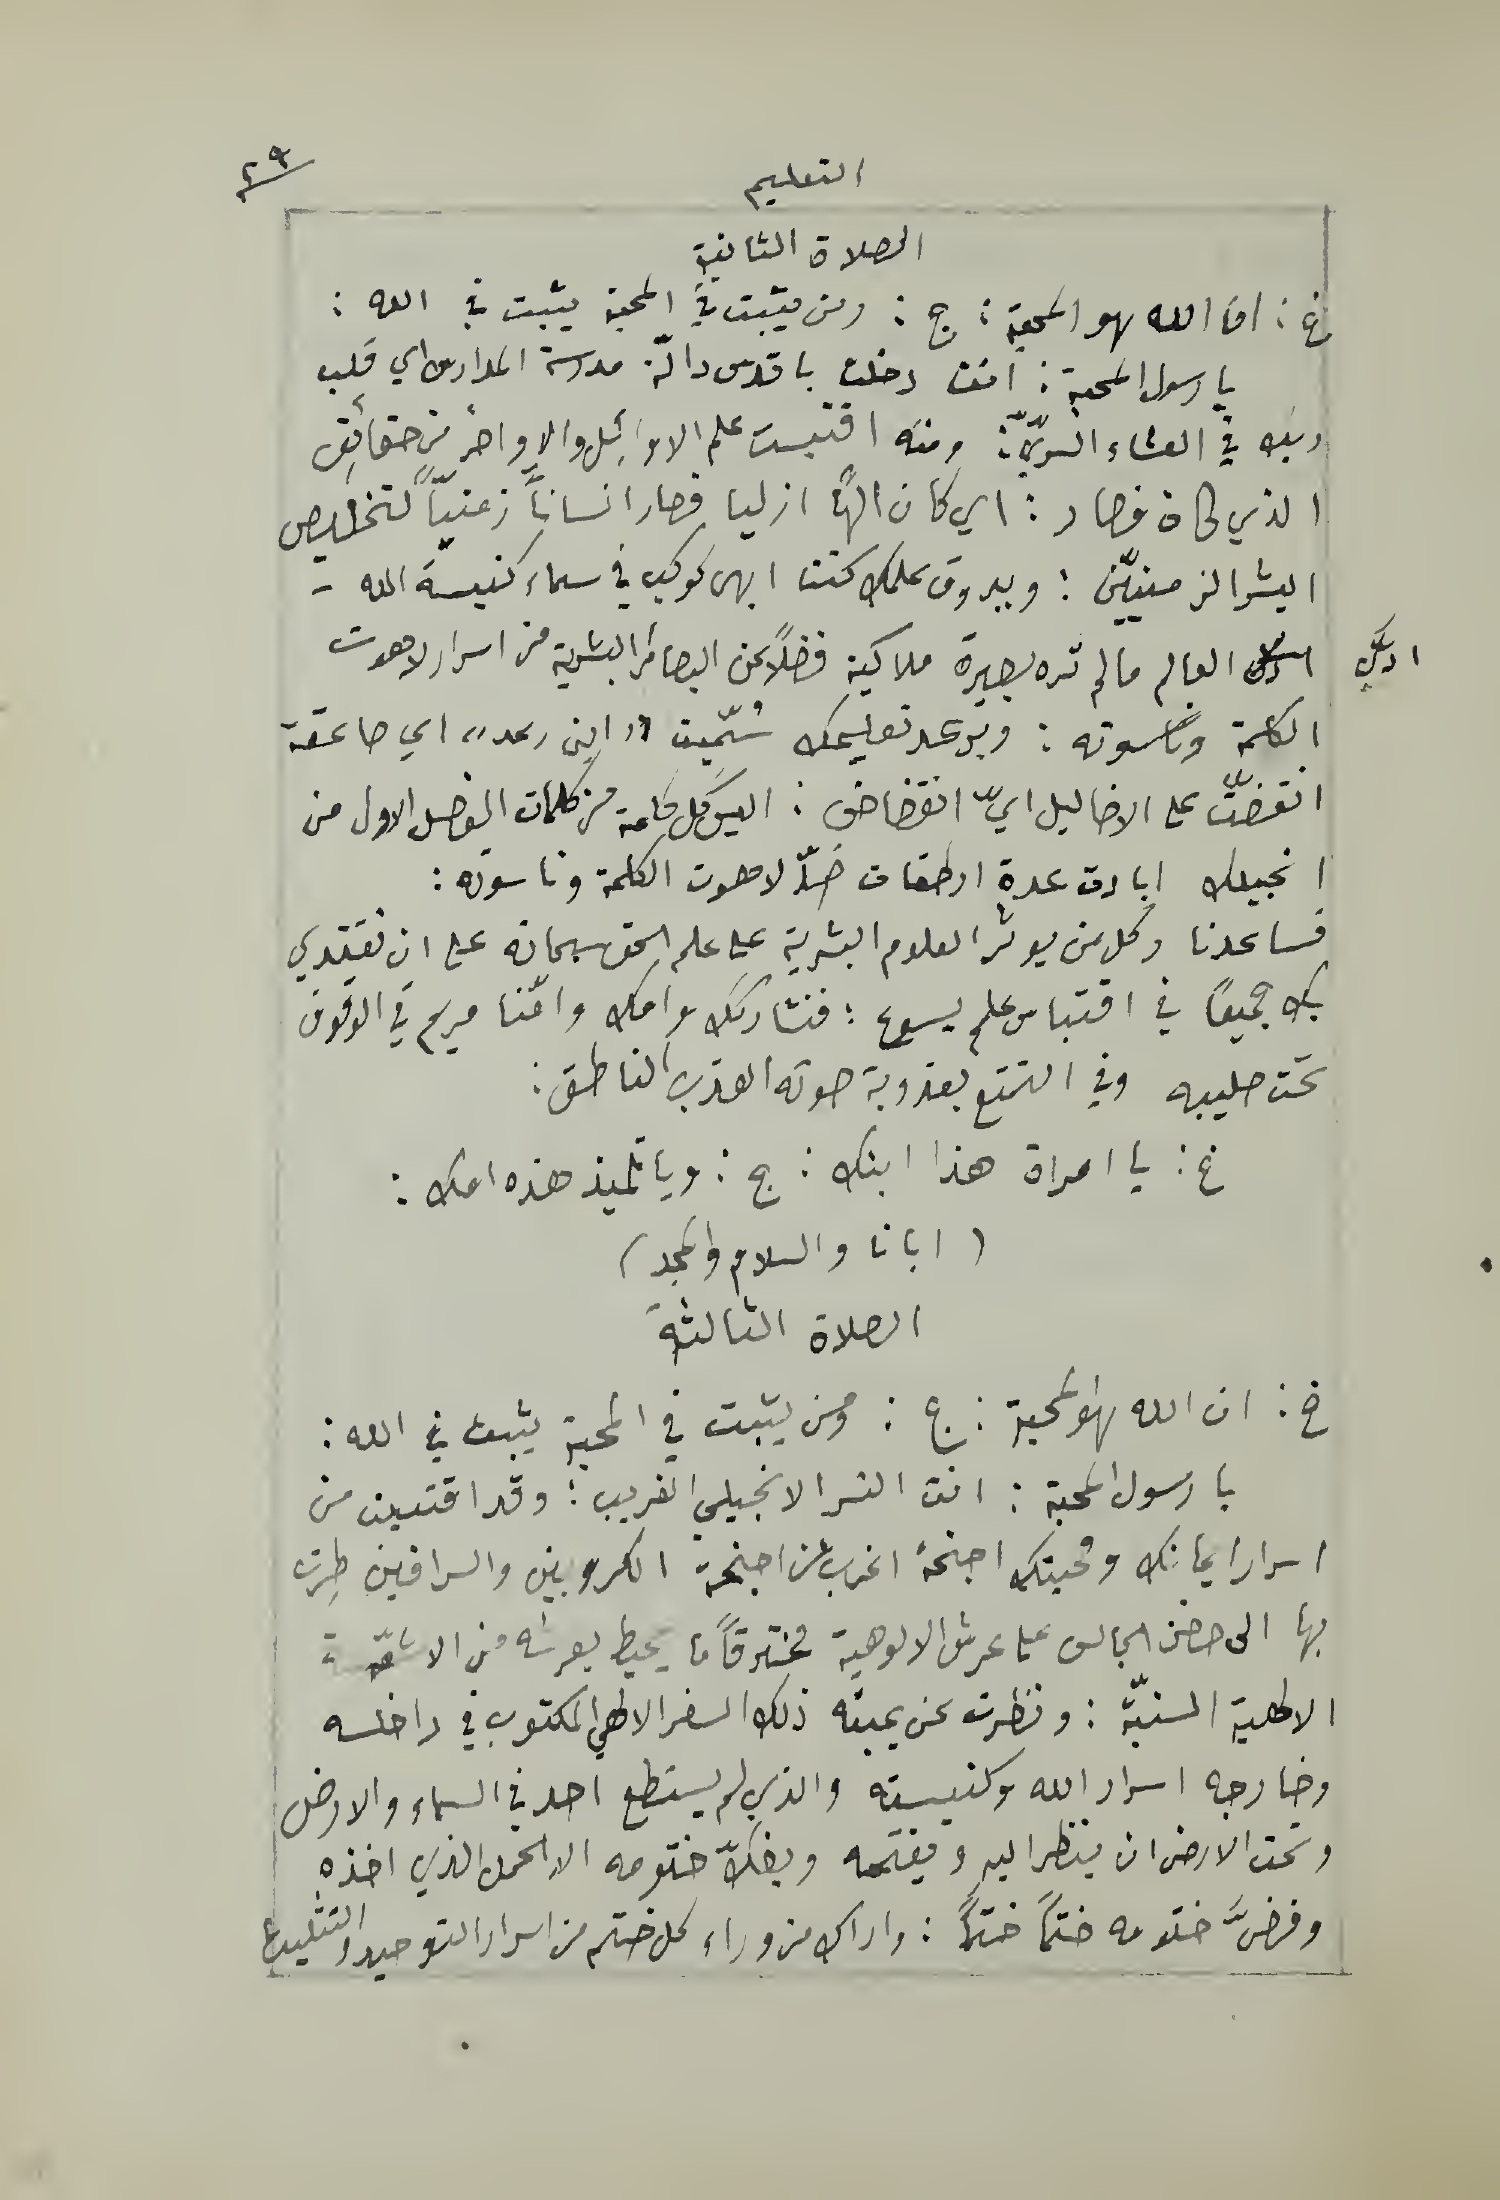 ٢٩
التعليم
الصلاة الثانية
خ : ان الله هو المحبة : ج : ومن يثبت في المحبة يثبت في الله :
يا رسول المحبة : انت دخلت باقدس دالّة مدرسة المدارس اي قلب
ربك في العشاء السرّيّ : ومنه اقتبست علم الاوائل والاواخر من حقائق
الذي كان فصار : اي كان الهًا ازليا فصار انسانًا زمنيًّا لتخليص
البشر الزمنيّين : وببروق علمك كنت ابهى كوكب في سماء كنيسة الله -
ارتل
العالم ما لم تره بصيرة ملاكية فضلًا عن البصائر البشرية من اسرار لاهوت
الكلمة وناسوته : وبرعد تعليمك سُمّيت "ابن رعد" اي صاعقة
انقضّت على الاضاليل ايّ انقضاض : اليس كل كلمة من كلمات الفصل الاول من
انجيلك ابادت عدة ارطقات ضدّ لاهوت الكلمة وناسوته :
فساعدنا وكل من يوثر العلوم البشرية على علم الحق سبحانه على ان نقتدي
بك جميعًا في اقتباس علم يسوع : فنشاركك وامك وامّنا مريم في الوقوف
تحت صليبه وفي التمتع بعذوبة صوته العذب الناطق :
خ : يا امراة هذا ابنك : ج : ويا تلميذ هذه امك :
( ابانا والسلام والمجد )
الصلاة الثالثة
خ : ان الله هو المحبة : ج : ومن يثبت في المحبة يثبت في الله :
يا رسول المحبة : انت النسر الانجيلي الغريب : وقد اقتنيت من
اسرار ايمانك ومحبتك اجنحة اغرب من اجنحة الكروبين والسرافين طِرت
بها الى حضن الجالس على عرش الالوهية مخترقًا ما يحيط بعرشه من الاشعّة
الالهية السنيّة : ونظرت عن يمينه ذلك السفر الالهي المكتوب في داخله
وخارجه اسرار الله وكنيسته والذي لم يستطع احد في السماء والارض
وتحت الارض ان ينظر اليه ويفتحه ويفكّ ختومه الا الحمل الذي اخذه
وفضّ ختومه ختمًا ختمًا : واراك من وراء كل ختم من اسرار التوحيد والتثليث